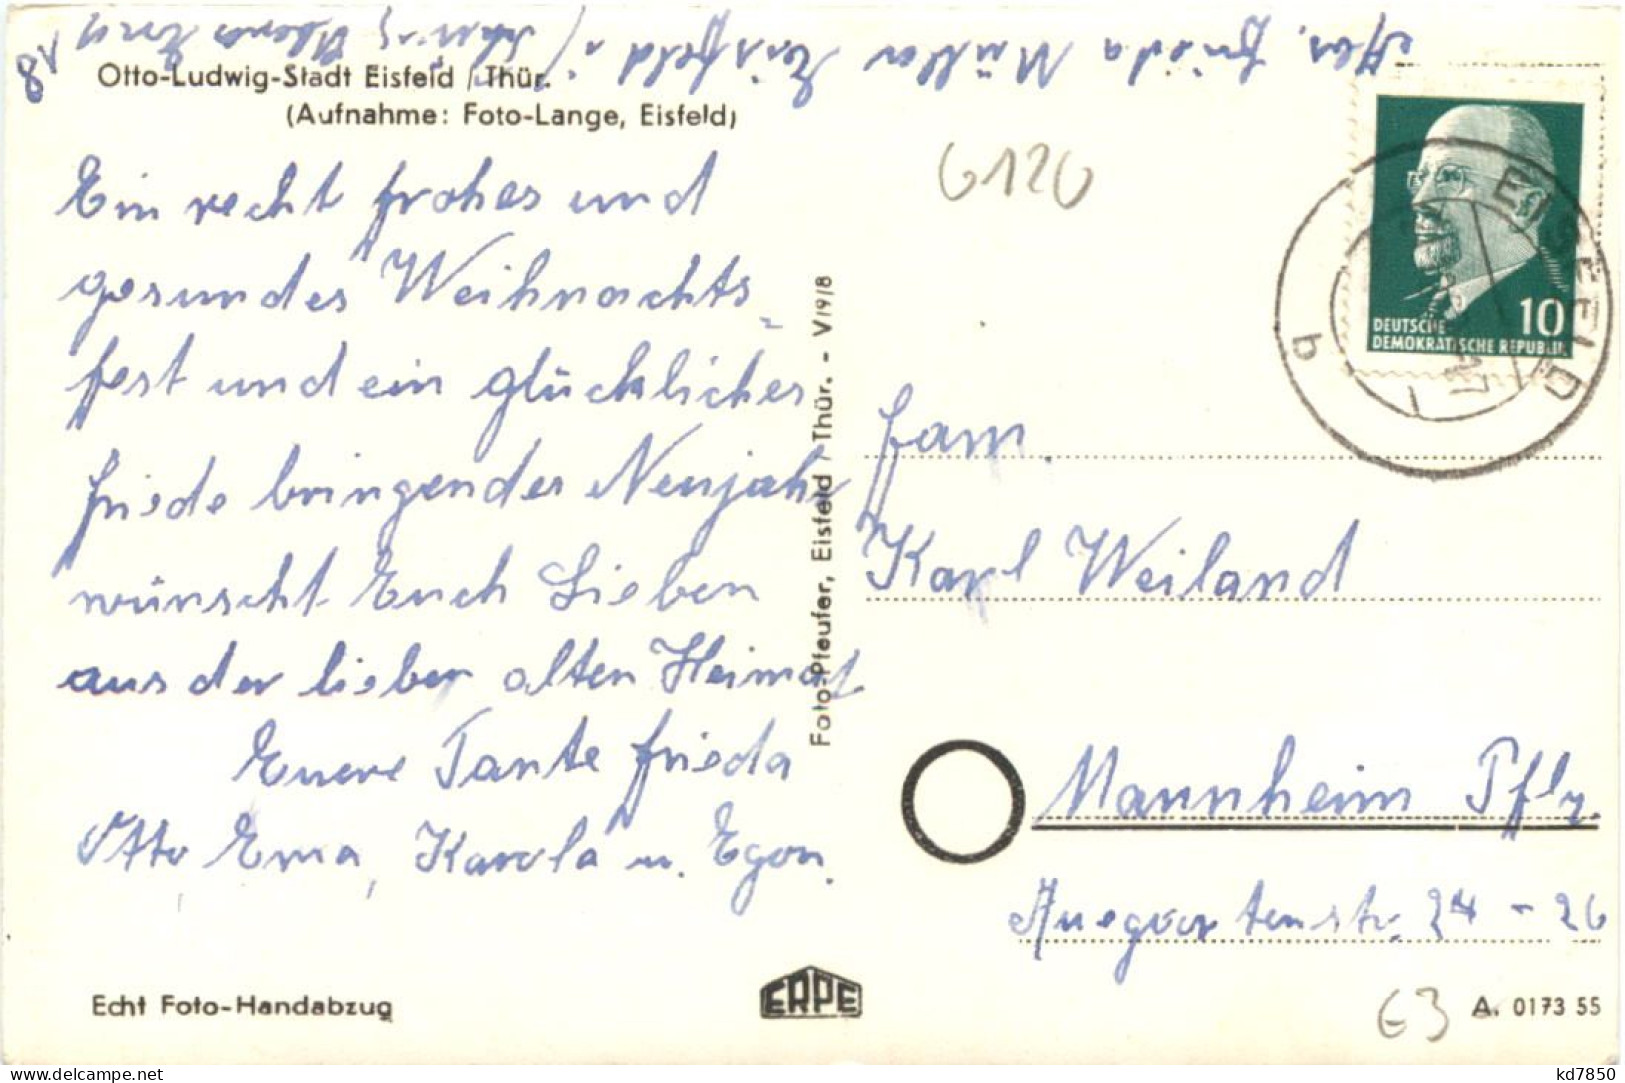 Absender Frieda Müller Eisfeld i/
18
Otto-Ludwig-Stadt Eisfeld / Thür.
(Aufnahme: Foto-Lange, Eisfeld)
Ein recht frohes und
gesundes Weihnachts-
fest und ein glückliches
friede bringendes Neujahr
wünscht Euch Lieben
aus der lieben alten Heimat
Euere Tante Frieda
Otto, Erna, Karola u. Egon.
Echt Foto-Handabzug
Foto-Pfeufer, Eisfeld / Thür. - V/9/8
ERPE
6120
DEUTSCHE
DEMOKRATISCHE REPUBLIK
10
EISFELD
b
Fam.
Karl Weiland
Mannheim
Augartenstr. 24 - 26
63
A. 0173 55
kd7850